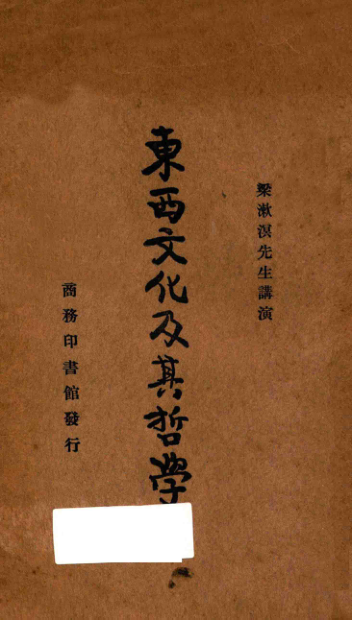 梁漱溟先生講演
東西文化及其哲學
商務印書館發行